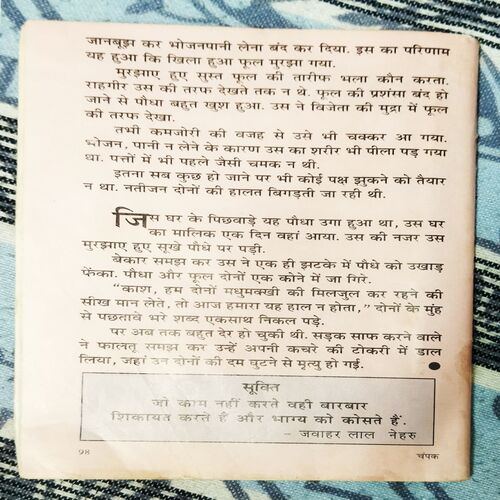 जानबूझ कर भोजनपानी लेना बंद कर दिया. इस का परिणाम
यह हुआ कि खिला हुआ फूल मुरझा गया.
मुरझाए हुए सुस्त फूल की तारीफ भला कौन करता.
राहगीर उस की तरफ देखते तक न थे. फूल की प्रशंसा बंद हो
जाने से पौधा बहुत खुश हुआ. उस ने विजेता की मुद्रा में फूल
की तरफ देखा.
तभी कमजोरी की वजह से उसे भी चक्कर आ गया.
भोजन, पानी न लेने के कारण उस का शरीर भी पीला पड़ गया
था. पत्तों में भी पहले जैसी चमक न थी.
इतना सब कुछ हो जाने पर भी कोई पक्ष झुकने को तैयार
न था. नतीजन दोनों की हालत बिगड़ती जा रही थी.
जिस घर के पिछवाड़े यह पौधा उगा हुआ था, उस घर
का मालिक एक दिन वहां आया. उस की नजर उस
मुरझाए हुए सूखे पौधे पर पड़ी.
बेकार समझ कर उस ने एक ही झटके में पौधे को उखाड़
फेंका. पौधा और फूल दोनों एक कोने में जा गिरे.
“काश, हम दोनों मधुमक्खी की मिलजुल कर रहने की
सीख मान लेते, तो आज हमारा यह हाल न होता,” दोनों के मुंह
से पछतावे भरे शब्द एकसाथ निकल पड़े.
पर अब तक बहुत देर हो चुकी थी. सड़क साफ करने वाले
ने फालतू समझ कर उन्हें अपनी कचरे की टोकरी में डाल
लिया, जहां उन दोनों की दम घुटने से मृत्यु हो गई.
सूक्ति
जो काम नहीं करते वही बारबार
शिकायत करते हैं और भाग्य को कोसते हैं.
– जवाहर लाल नेहरु
98
चंपक